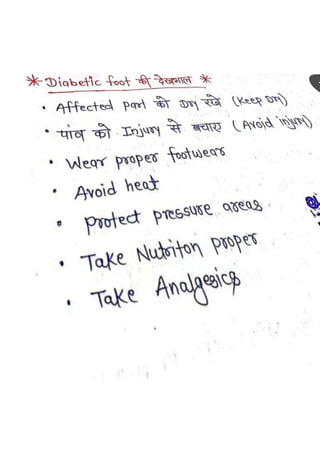 * Diabetic foot की देखभाल *
• Affected Part को Dry रखे (Keep Dry)
• पांव को Injury से बचाए (Avoid injury)
• Wear proper footwear
• Avoid heat
• Protect pressure areas
• Take Nutriton proper
• Take Analgesics